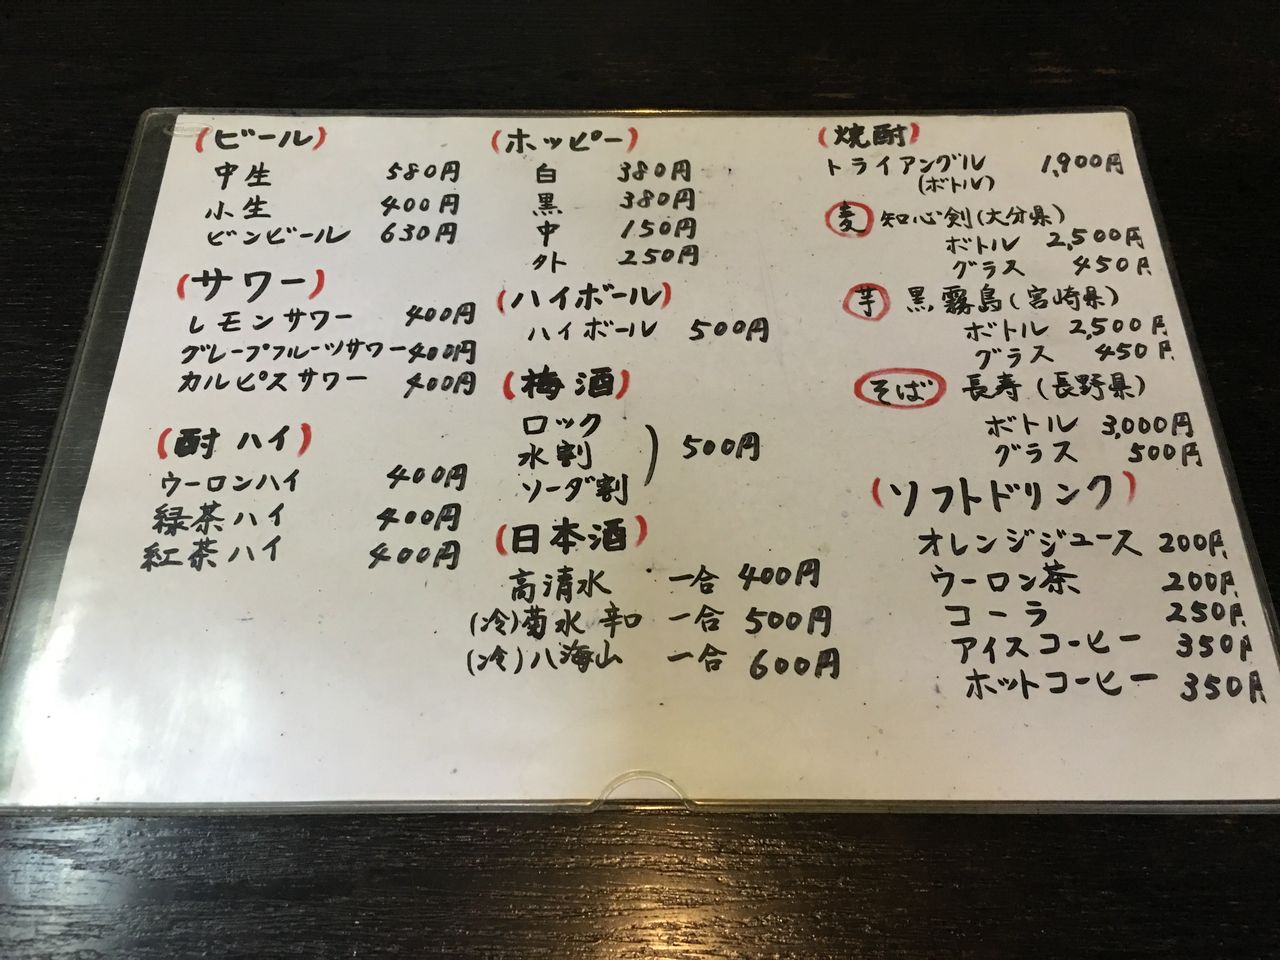 (ビール)
中生 580円
小生 400円
ビンビール 630円
(サワー)
レモンサワー 400円
グレープフルーツサワー 400円
カルピスサワー 400円
(酎ハイ)
ウーロンハイ 400円
緑茶ハイ 400円
紅茶ハイ 400円
(ホッピー)
白 380円
黒 380円
中 150円
外 250円
(ハイボール)
ハイボール 500円
(梅酒)
ロック
水割 ) 500円
ソーダ割
(日本酒)
高清水 一合 400円
(冷)菊水 辛口 一合 500円
(冷)八海山 一合 600円
(焼酎)
トライアングル 1,900円
(ボトル)
麦 知心剣(大分県)
ボトル 2,500円
グラス 450円
芋 黒霧島(宮崎県)
ボトル 2,500円
グラス 450円
そば 長寿(長野県)
ボトル 3,000円
グラス 500円
(ソフトドリンク)
オレンジジュース 200円
ウーロン茶 200円
コーラ 250円
アイスコーヒー 350円
ホットコーヒー 350円